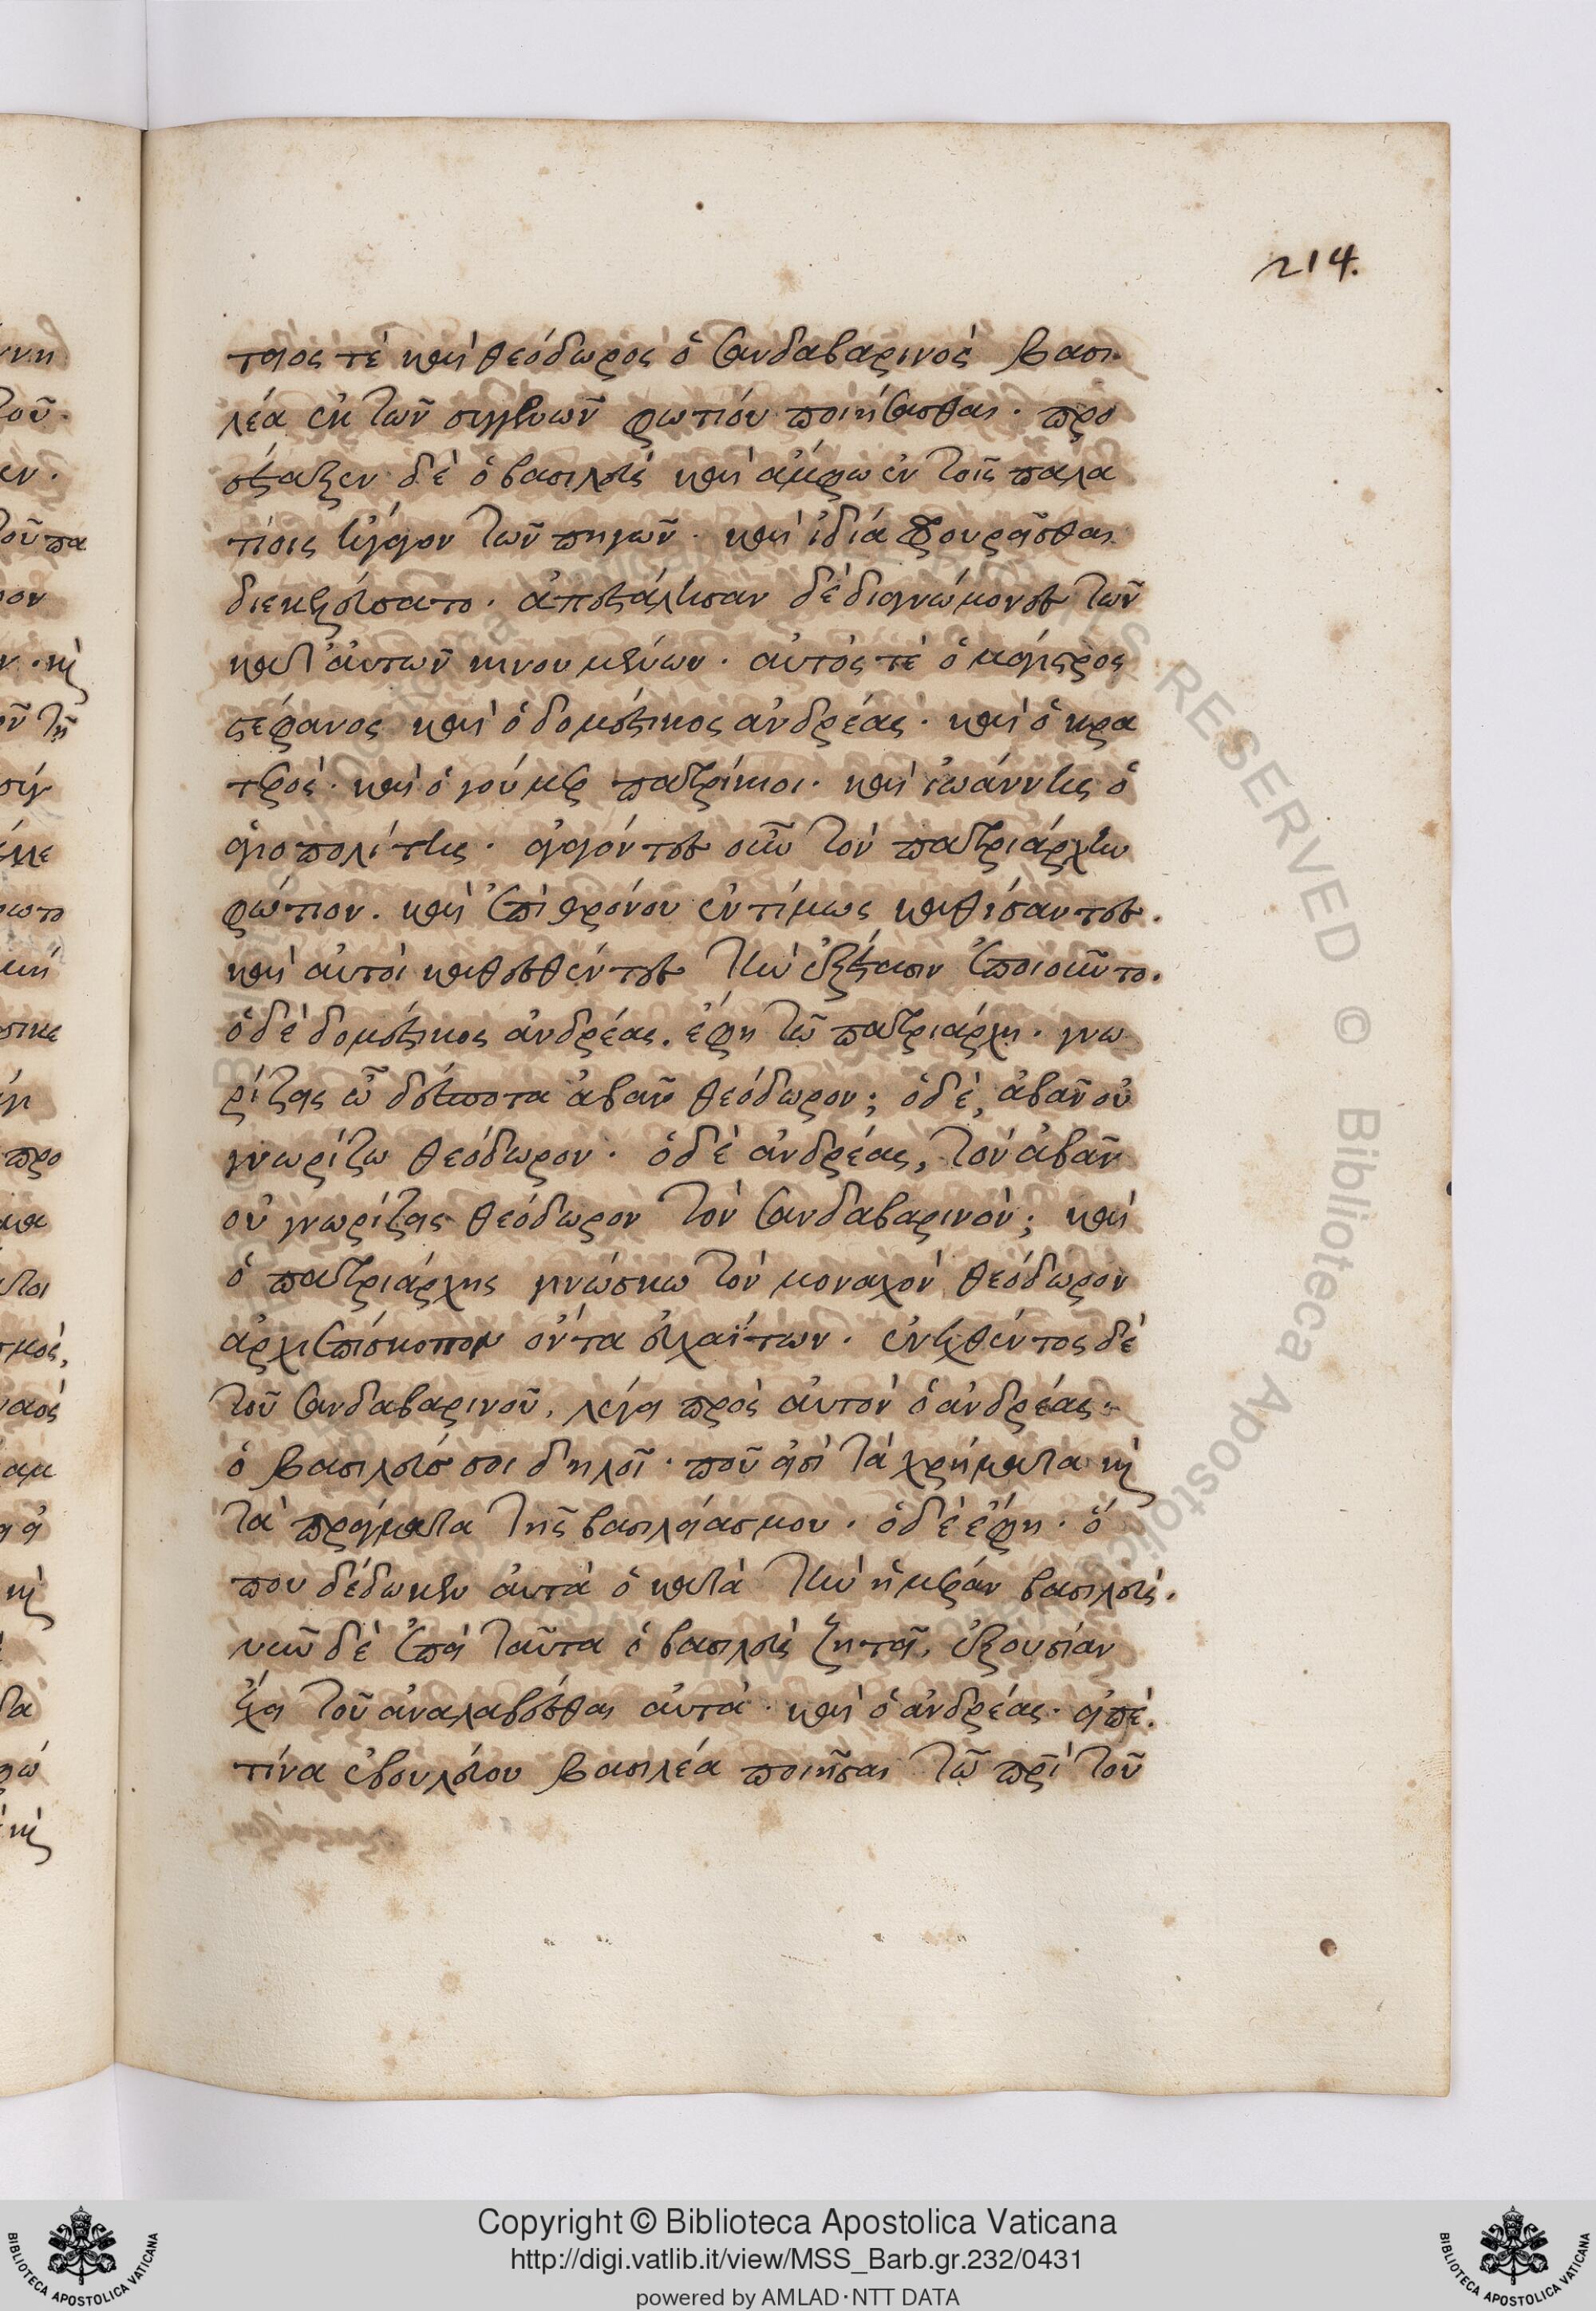 214.
τϊος τὲ καὶ θεόδωρος ὁ σανδαβαρινὸς βασι
λέα ἐκ τῶν συγγενῶν φωτίου ποιήσασθαι. προ
σέταξεν δὲ ὁ βασιλεὺς καὶ ἄμφω ἐν τοῖς παλα
τίοις τῶν πηγῶν. καὶ ἰδία φρουρεῖσθαι
διεκελεύσατο. ἀπεστάλησαν δὲ διαγνώμονες τῶν
κατ' αὐτῶν κινουμένων. αὐτός τὲ ὁ μάγιστρος
στέφανος καὶ ὁ δομέστικος ἀνδρέας. καὶ ὁ κρα
τερὸς. καὶ ὁ γούμερ πατρίκιοι. καὶ ἰωάννης ὁ
ἁγιοπολίτης. ἀγαγόντες οὖν τὸν πατριάρχην
φώτιον. καὶ ἐπὶ θρόνου ἐντίμως καθίσαντες.
καὶ αὐτοὶ καθεσθέντες τὴν ἐξέτασιν ἐποιοῦντο.
ὁ δὲ δομέστικος ἀνδρέας. ἔφη τῶ πατριάρχη. γνω
ρίζεις ὦ δέσποτα ἀβᾶν θεόδωρον; ὁ δὲ, ἀβᾶν οὐ
γνωρίζω θεόδωρον. ὁ δὲ ἀνδρέας, τὸν ἀβᾶν
οὐ γνωρίζεις θεόδωρον τὸν σανδαβαρινὸν; καὶ
ὁ πατριάρχης γινώσκω τὸν μοναχὸν θεόδωρον
ἀρχιεπίσκοπον ὄντα εὐχαΐτων. ἐνεχθέντος δὲ
τοῦ σανδαβαρινοῦ, λέγει πρὸς αὐτὸν ὁ ἀνδρέας.
ὁ βασιλεύς σοι δηλοῖ. ποῦ εἰσὶ τὰ χρήματα καὶ
τὰ πράγματα τῆς βασιλείας μου. ὁ δὲ ἔφη. ὅ
που δέδωκεν αὐτὰ ὁ κατὰ τὴν ἡμέραν βασιλεὺς.
νῦν δὲ ἐπεὶ ταῦτα ὁ βασιλεὺς ζητεῖ, ἐξουσίαν
ἔχει τοῦ ἀναλαβέσθαι αὐτά. καὶ ὁ ἀνδρέας. εἰπὲ.
τίνα ἐβουλεύου βασιλέα ποιῆσαι τῶ πρὶ τοῦ
Copyright © Biblioteca Apostolica Vaticana
http://digi.vatlib.it/view/MSS_Barb.gr.232/0431
powered by AMLAD·NTT DATA
BIBLIOTECA APOSTOLICA VATICANA
BIBLIOTECA APOSTOLICA VATICANA